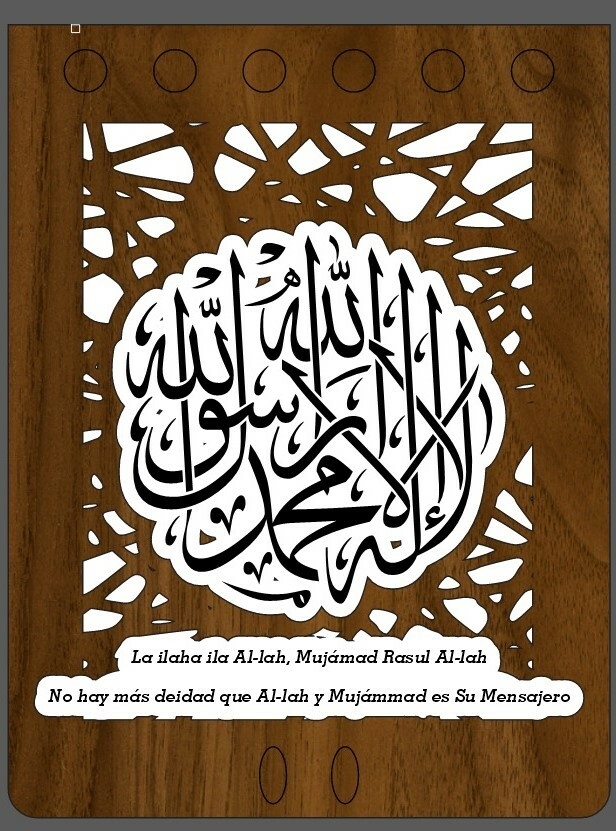 لا إله إلا الله محمد رسول الله
La ilaha ila Al-lah, Mujámad Rasul Al-lah
No hay más deidad que Al-lah y Mujámmad es Su Mensajero